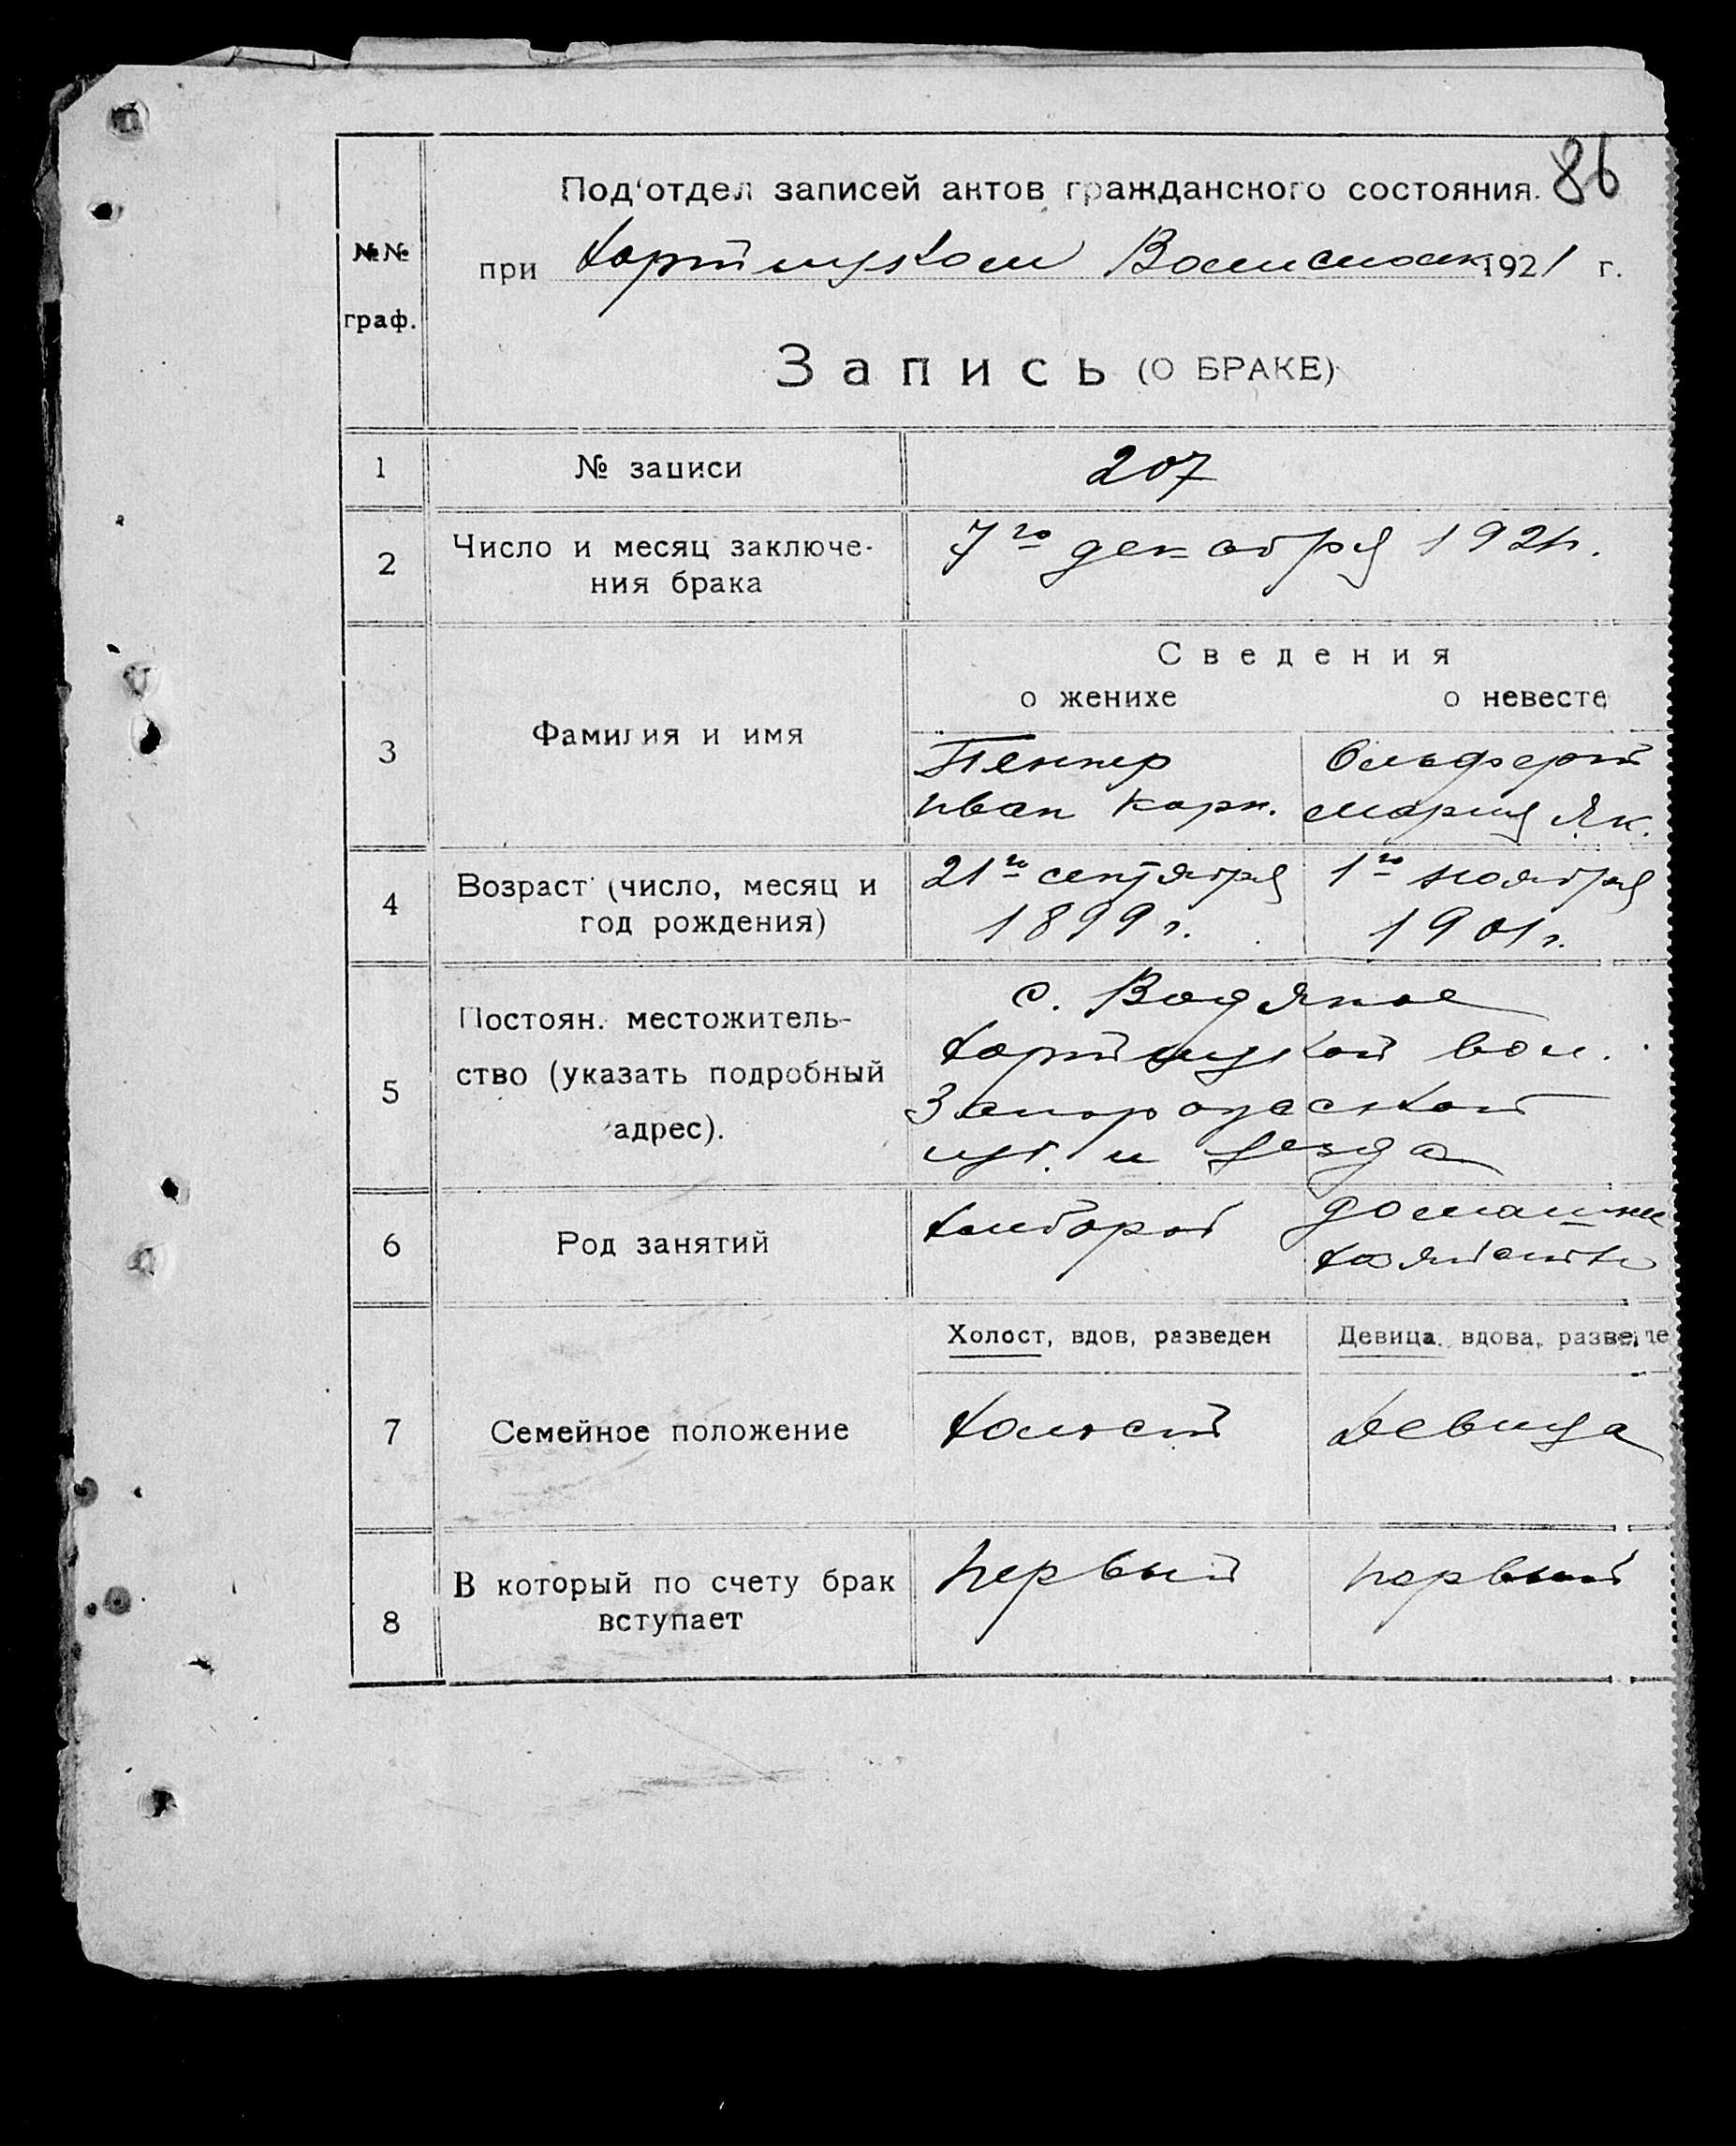 86
Под'отдел записей актов гражданского состояния.
№№
граф.
при Хортицком Волисполк 1921 г.
Запись (О БРАКЕ)
1 № записи 207
2 Число и месяц заключе-
ния брака
7го декабря 1921г.
Сведения
о женихе о невесте
3 Фамилия и имя
Пеннер Ольферт
Иван Корн. Мария Як.
4 Возраст (число, месяц и
год рождения)
21го сентября 1го ноября
1899 г. 1901 г.
5 Постоян. местожитель-
ство (указать подробный
адрес).
с. Водяное
Хортицкой вол.
Запорожской
губ. и уезда
6 Род занятий
Хлебороб домашнее
хозяйство
7 Семейное положение
Холост, вдов, разведен Девица, вдова, разведе
Холост Девица
8 В который по счету брак
вступает
первый первый